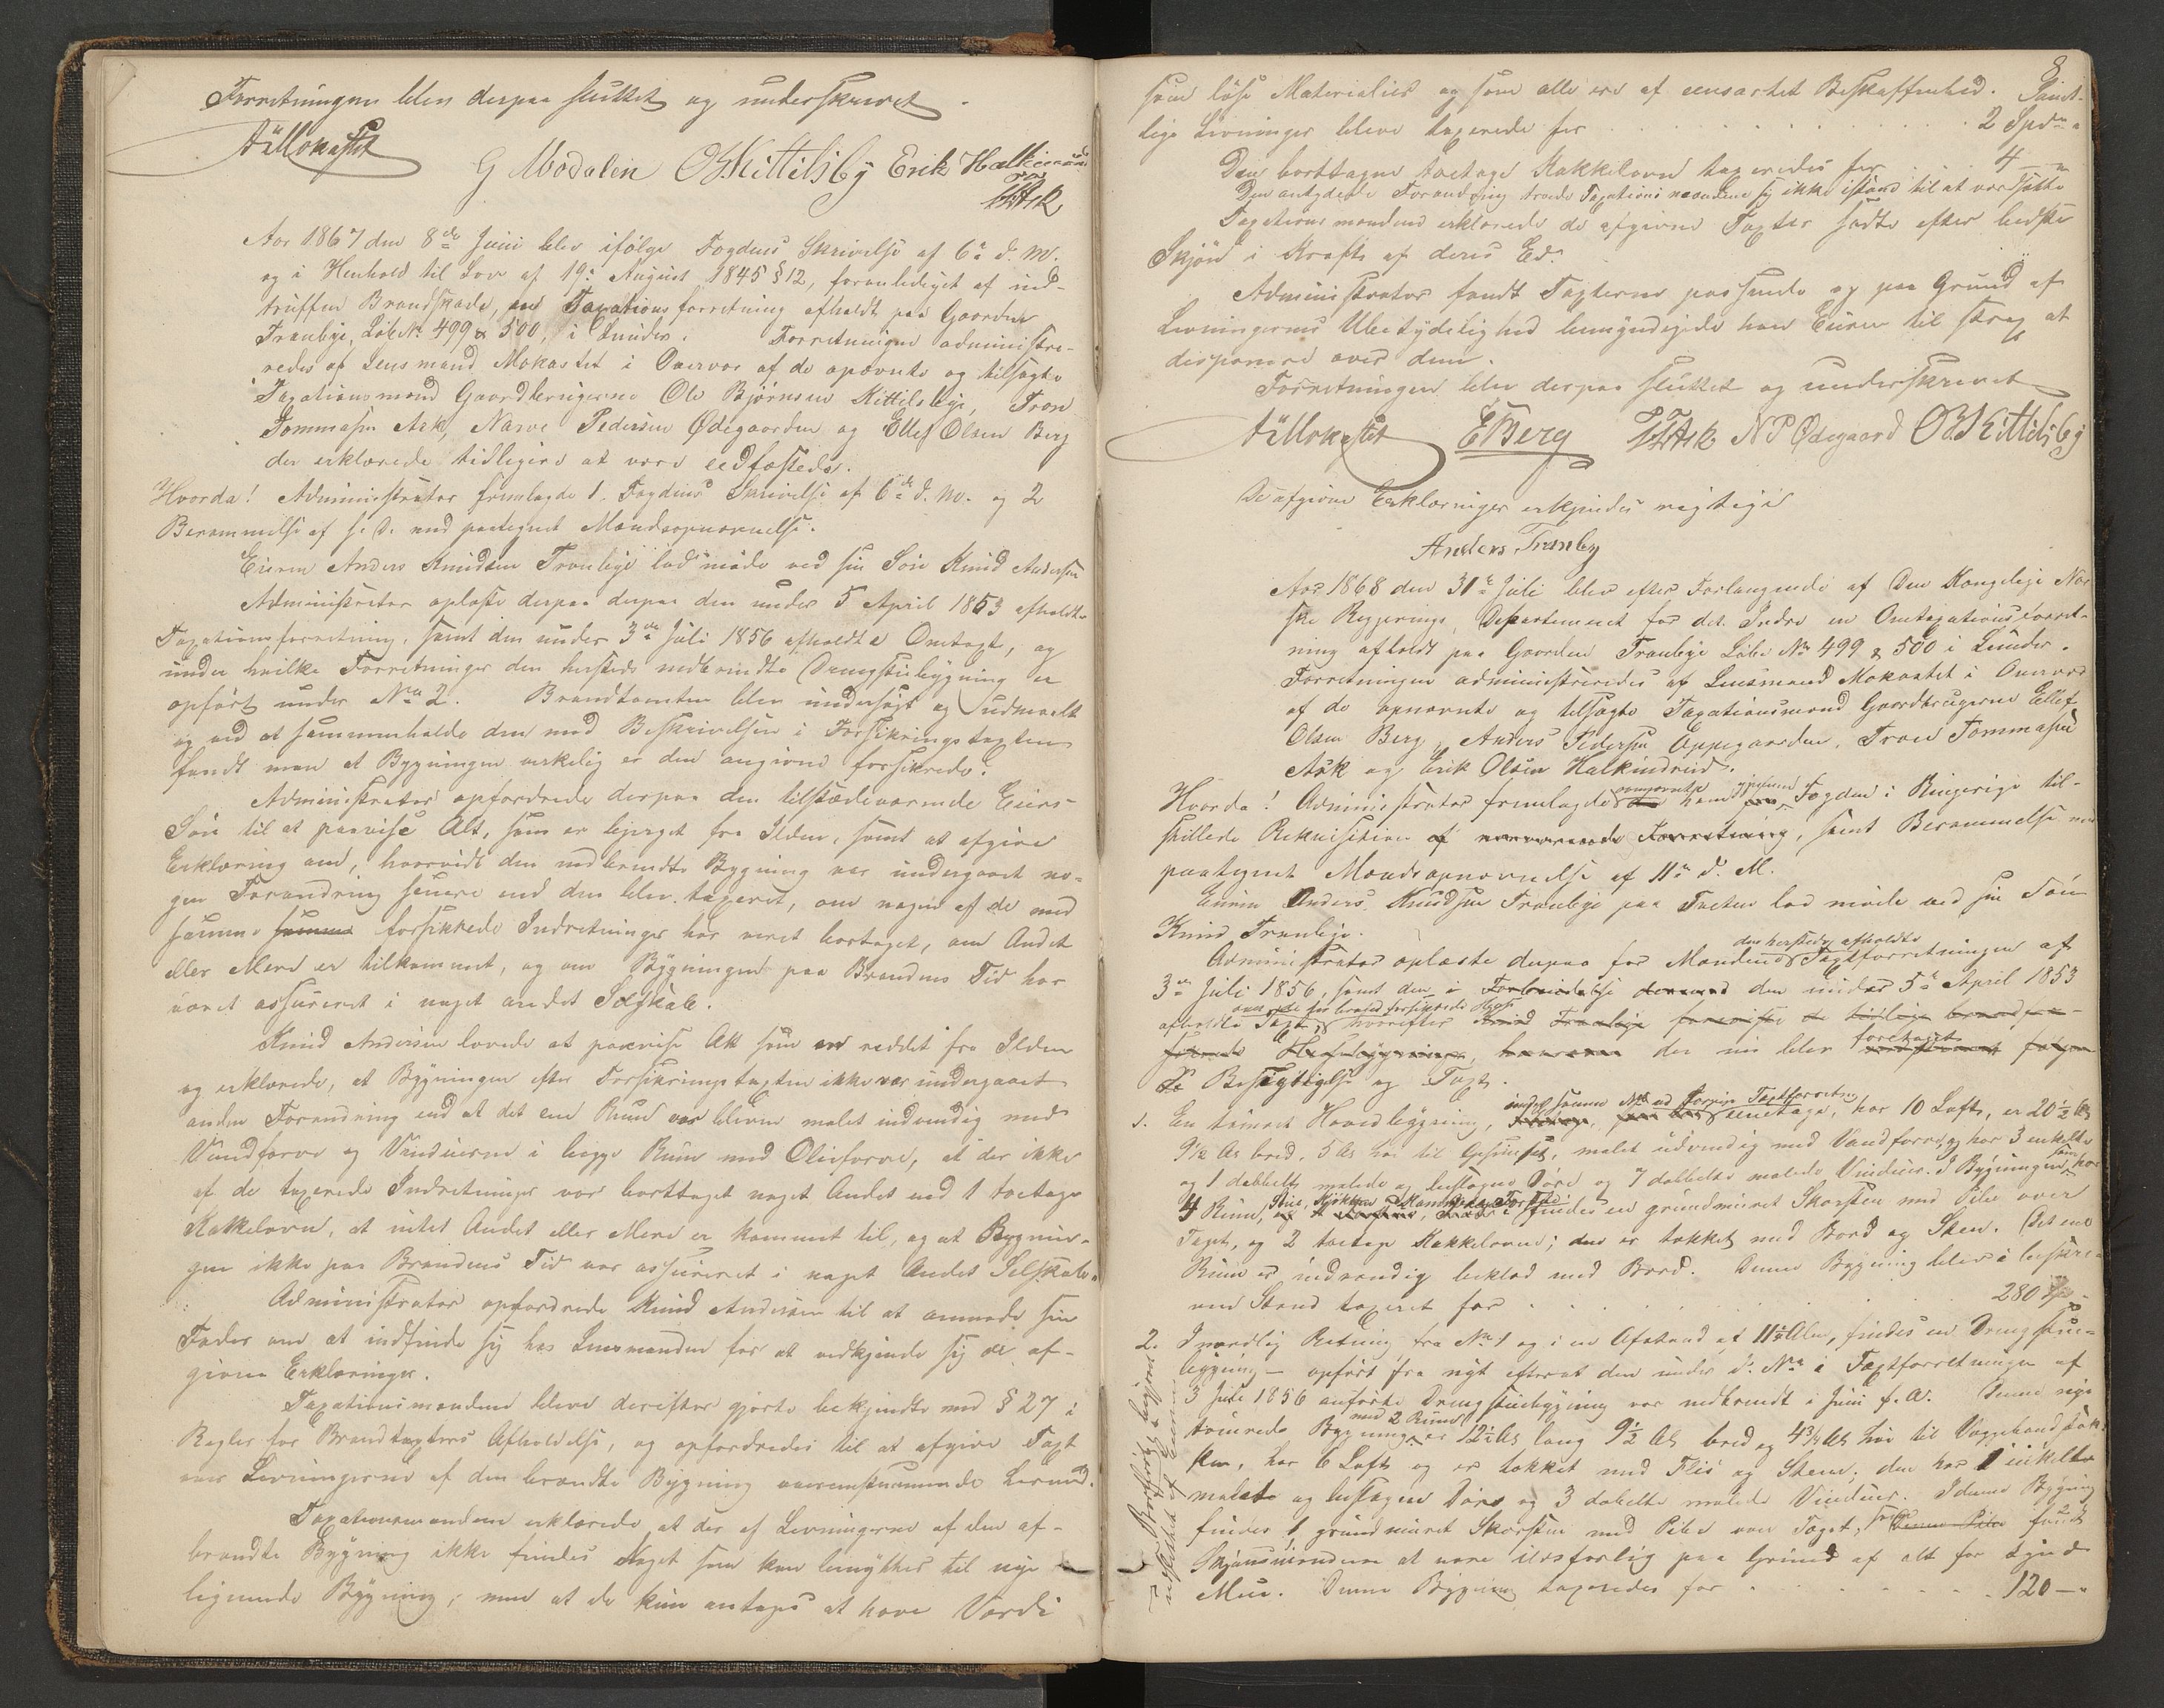 Forretningen blev derpaa sluttet og underskrevet.
AMokastet
G Modalen OBKittilsby Erik Halkinrud
TTAsk
Aar 1867 den 8de Juni blev ifølge Fogdens Skrivelse af 6te d. M.
og i Henhold til Lov af 19de August 1845 § 12, foranlediget af ind-
truffen Brandskade, en Taxationsforretning afholdt paa Gaarden
Tranbye, Løbe No 499 & 500, i Lunder. Forretningen administre-
redes af Lensmand Mokastet i Overvær af de opnævnte og tilsagte
Taxationsmænd Gaardbrugerne Ole Bjørnsen Kittilsbye, Tron
Tommasen Ask, Narve Pedersen Ødegaarden og Ellef Olsen Berg
der erklærede tidligere at være eedfæstede.
Hvorda! Administrator fremlagde 1. Fogdens Skrivelse af 6te d. M. og 2
Berammelse af s. D. med paategnet Mændsopnævnelse.
Eieren Anders Knudsen Tranbye lod møde ved sin Søn Knud Andersen
Administrator oplæste derpaa derpaa den under 5 April 1853 afholdte
Taxationsforretning, samt den under 3die Juli 1856 afholdte Omtaxt, og
under hvilke Forretninger den herstede nedbrændte Drengstuebygning er
opført under No 2. Brandtomten blev undersøgt og udmaalt
og ved at sammenholde den med Beskrivelsen i Forsikringstaxten
fandt man at Bygningen virkelig er den angivne forsikrede.
Administrator opfordrede derpaa den tilstedeværende Eiers
Søn til at paavise Alt, som er bjerget fra Ilden, samt at afgive
Erklæring om, hvorvidt den nedbrændte Bygning var undergaaet no-
gen Forandring senere end den blev taxeret, om nogen af de med
samme samme forsikkrede Indretninger har været bortaget, om Andet
eller Mere er tilkommet, og om Bygningen paa Brandens Tid har
været assureret i noget andet Selskab.
Knud Andersen lovede at paavise Alt som var reddet fra Ilden
og erklærede, at Bygningen efter Forsikringstaxten ikke var undergaaet
anden Forandring end at det ene Rum var bleven malet indvendig med
Vandfarve og Vinduerne i begge Rum med Oliefarve, at der ikke
af de taxerede Indretninger var borttaget noget Andet end 1 toetages
Kakkelovn, at intet Andet eller Mere er kommet til, og at Bygnin-
gen ikke paa Brandens Tid var assureret i noget Andet Selskab.
Administrator opfordrede Knud Andersen til at anmode sin
Fader om at indfinde sig hos Lensmanden for at vedkjende sig de af-
givne Erklæringer.
Taxationsmændene bleve derefter gjorte bekjendte med § 27 i
Regler for Brandtaxters Afholdelse, og opfordredes til at afgive Taxt
over Levningerne af den brændte Bygning overensstemmende hermed.
Taxationsmændene erklærede at der af Levningerne af den af-
brændte Bygning ikke findes Noget som kan benyttes til nye
lignende Bygning; men at de kun antages at have Værdi
8
som løse Materialier og som alle ere af eensartet Beskaffenhed. Samt-
lige Levninger bleve taxerede for 2 Spdr
Den borttagne toetages Kakkelovn taxeredes for 4 "
Den antydede Forandring troede Taxationsmændene sig ikke istand til at værdsætte
Taxationsmændene erklærede de afgivne Taxter satte efter bedste
Skjøn i Kraft af deres Ed.
Administrator fandt Taxterne passende og paa Grund af
Levningernes Ubetydelighed bemyndigede han Eieren til strax at
disponere over dem.
Forretningen blev derpaa sluttet og underskrevet
AMokastet EBerg TTAsk NPØdegaard OBKittilsby
De afgivne Erklæringer erkjendes rigtige
Anders Tranby
Aar 1868 den 31te Juli blev efter Forlangende af Den Kongelige Nor
ske Regjerings Departement for det Indre en Omtaxationsforret-
ning afholdt paa Gaarden Tranbye Løbe No 499 & 500 i Lunder.
Forretningen administreredes af Lensmand Mokastet i Overvær
af de opnævnte og tilsagte Taxationsmænd Gaardbrugerne Ellef
Olsen Berg, Anders Pedersen Oppegaarden, Tron Tommasen
Ask og Erik Olsen Halkinrud.
Hvorda! Administrator fremlagde den ham gjennem Fogden i Ringerige til-
stillede Rekvisition af nærværende Forretning, samt Berammelse med
paategnet Mændsopnævnelse af 11te d. M.
Eieren Anders Knudsen Tranbye paa Tveten lod møde ved sin Søn
Knud Tranbye.
Administrator oplæste derpaa for Mændene den herstedes afholdte Taxtforretningen af
3die Juli 1856, samt den i Forbindelse dermed den under 5te April 1853
afholdte Taxt, hvorefter Knud Tranbye foreviste de tidligere brandfor-
sikrede Husebygninger, hvorom der nu blev foretaget
Besigtigelse og Taxt.
1. En tømret Hovedbygning, under samme No ved forrige Taxtforretn. eenetages, har 10 Lofts, er 20 1/2 Al
9 1/2 Al bred, 5 Al høi til Gesimset, malet udvendig med Vandfarve, har 3 enkelte
og 1 dobbelt malede og beslagne Døre og 7 dobbelte malede Vinduer. I Bygningen som har
4 Rum, Stue, Kjøkken, Kammer og Forstue findes en grundmuret Skorsten med Pibe over
Taget, og 2 toetages Kakkelovne; den er tækket med Bord og Sten. Det ene
Rum er indvendig beklæd med Bord. Denne Bygning blev i beskre-
ven Stand taxeret for 280 Spd
2. I nordlig Retning fra No 1 og i en Afstand af 11 1/2 Alen, findes en Drengstue-
bygning – opført fra nyt efterat den under d. No i Taxtforretningen af
3 Juli 1856 anførte Drengstuebygning var nedbrændt i Juni f. A. Denne nye
tømrede Bygning med 2 Rum er 12 1/2 Al lang 9 1/2 Al bred og 4 3/4 Al høi til Vægbaand
har 6 Lofts og er tækket med Flis og Stene; den har 1 enkelte
malede og beslagne Døre og 3 dobelte malede Vinduer. I denne Bygning
findes 1 grundmuret Skorsten med Pibe over Taget; denne Pibe fandt
Skjønsmændene at være ildsfarlig paa Grund af alt for tynde
Mur. Denne Bygning taxeredes for 120 — "